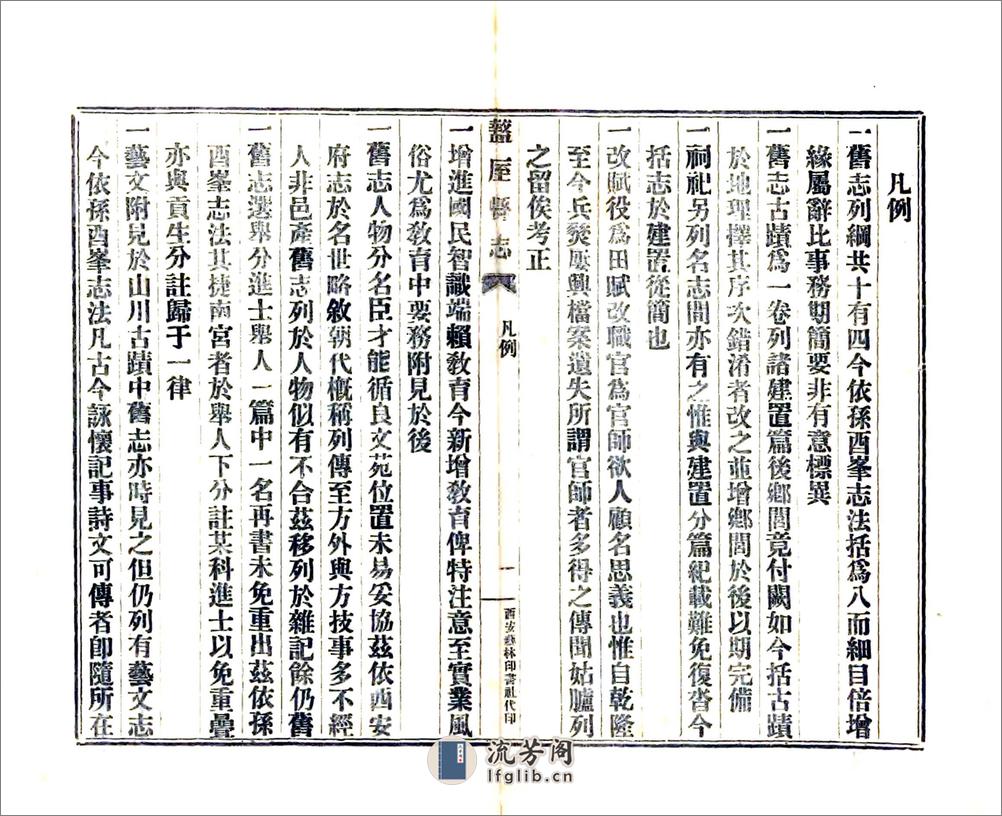 凡例
一舊志列綱共十有四今依孫酉峯志法括爲八而細目倍增
緣屬辭比事務期簡要非有意標異
一舊志古蹟爲一卷列諸建置篇後鄉閭竟付闕如今括古蹟
於地理擇其序次錯淆者改之並增鄉閭於後以期完備
一祠祀另列名志間亦有之惟與建置分篇紀載難免復沓今
括志於建置從簡也
一改賦役爲田賦改職官爲官師欲人顧名思義也惟自乾隆
至今兵燹屢興檔案遺失所謂官師者多得之傳聞姑臚列
之留俟考正
盩厔縣志
凡例
一
西安藝林印書社代印
一增進國民智識端賴教育今新增教育俾特注意至實業風
俗尤爲教育中要務附見於後
一舊志人物分名臣才能循良文苑位置未易妥協茲依西安
府志於名世略敘朝代槪稱列傳至方外與方技事多不經
人非邑產舊志列於人物似有不合茲移列於雜記餘仍舊
一舊志選舉分進士舉人一篇中一名再書未免重出茲依孫
酉峯志法其捷南宮者於舉人下分註某科進士以免重疊
亦與貢生分註歸于一律
一藝文附見於山川古蹟中舊志亦時見之但仍列有藝文志
今依孫酉峯志法凡古今詠懷記事詩文可傳者卽隨所在
流芳阁
lfglib.cn